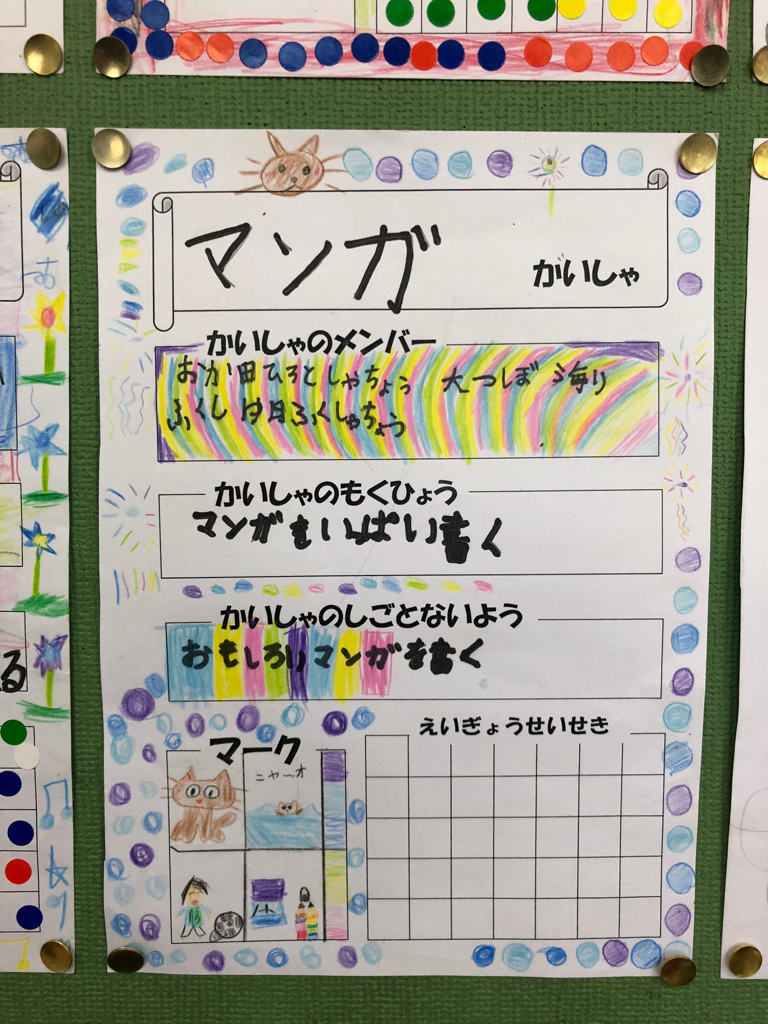 マンガ
がいしゃ
かいしゃのメンバー
おか田ひろと しゃちょう 大つぼ 海り
ふくし ゆ月ふくしゃちょう
かいしゃのもくひょう
マンガをいっぱい書く
かいしゃのしごとないよう
おもしろいマンガを書く
マーク
えいぎょうせいせき
ニャ〜オ
る